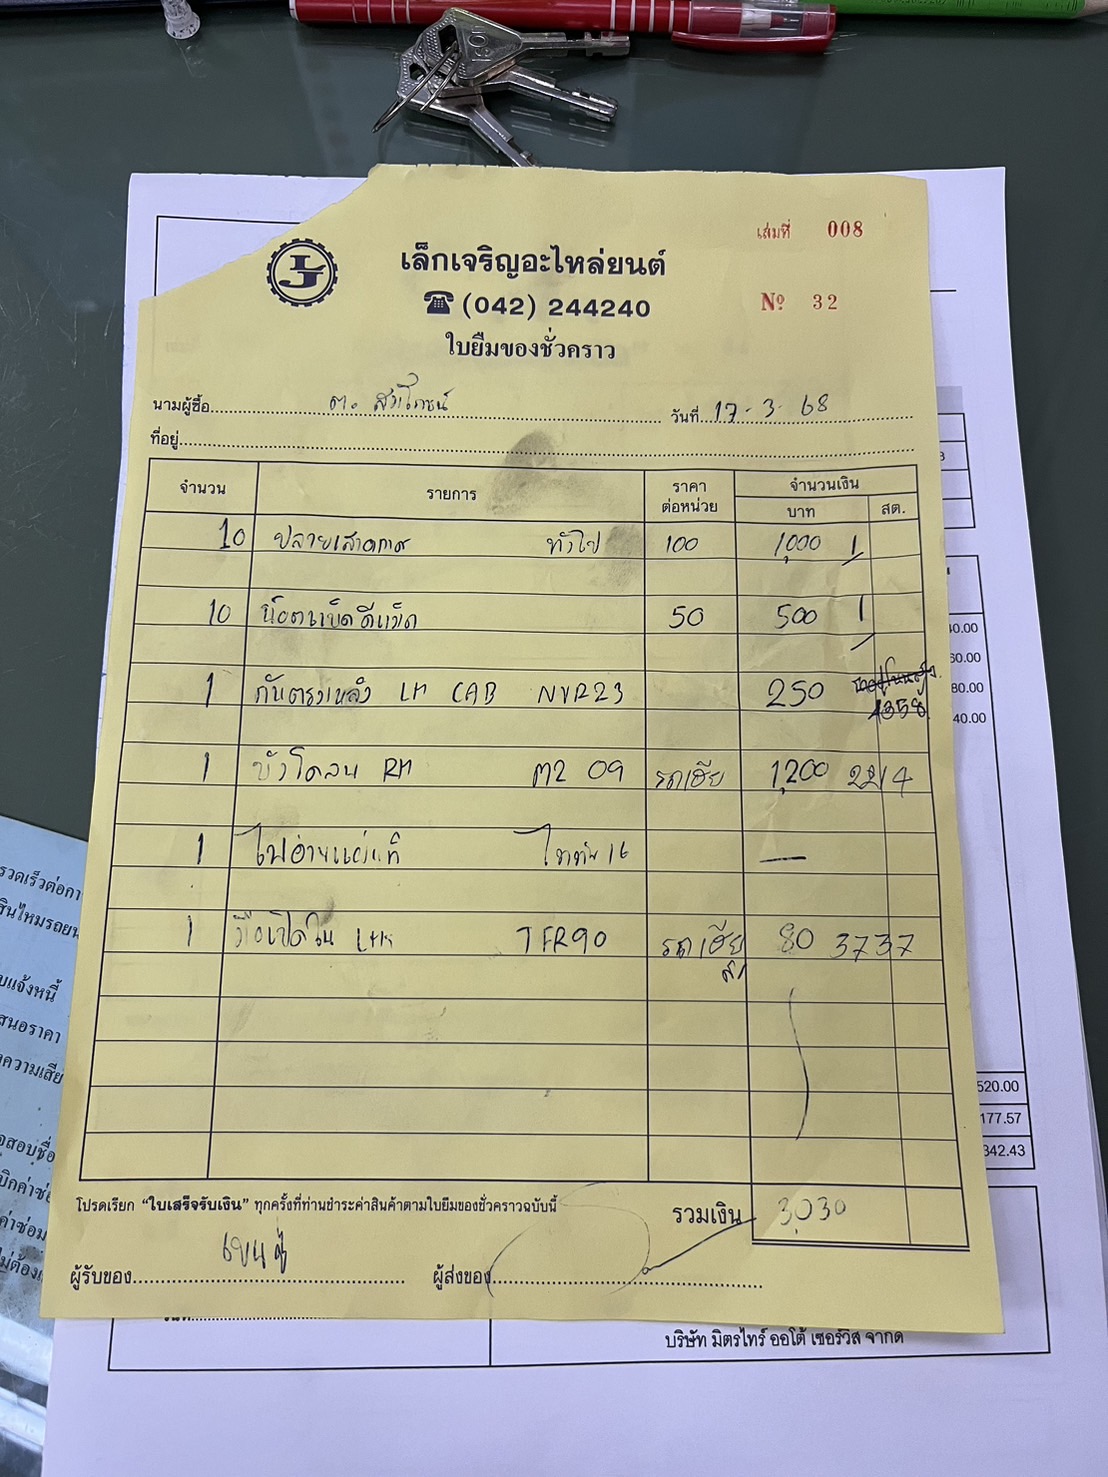 เล่มที่ 008
LJ
เล็กเจริญอะไหล่ยนต์
(042) 244240
Nº 32
ใบยืมของชั่วคราว
นามผู้ซื้อ ต. สมโภชน์ วันที่ 17-3-68
ที่อยู่
จำนวน รายการ ราคาต่อหน่วย จำนวนเงิน
บาท สต.
10 ปลายเสาอากาศ ทั่วไป 100 1,000
10 50 500
1 LH CAB NVR23 250
1358
1 บังโคลน RH M2 09 รถเฮีย 1,200 2214
1 ไททัน 16 —
1 มือเปิดใน TFR90 รถเฮีย 80 3737
โปรดเรียก "ใบเสร็จรับเงิน" ทุกครั้งที่ท่านชำระค่าสินค้าตามใบยืมของชั่วคราวฉบับนี้
รวมเงิน 3,030
ผู้รับของ ผู้ส่งของ
40.00
60.00
80.00
40.00
520.00
177.57
342.43
รวดเร็วต่อกา
สินไหมรถยน
บแจ้งหนี้
สนอราคา
ความเสีย
บริษัท มิตรไทร์ ออโต้ เซอร์วิส จำกัด